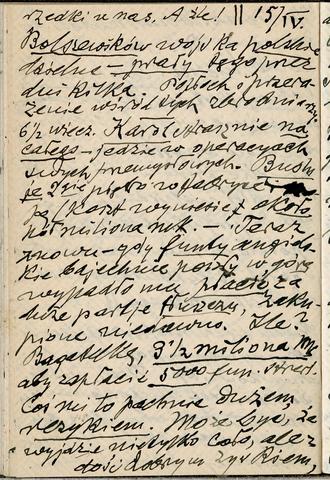 rzedki u nas. A źle! || 15/IV.
Bolszewików wojska polskie
dzielne – prały tego przez
dni kilka. Popłoch i przera-
żenie wśród tych zbrodniarzy.
6/2 wiecz. Karol strasznie na
całego – jedzie w operacyach
swych przemysłowych. Budu-
je 3gie piętro w fabryce
Ją (koszt wyniesie) około
pół miliona mk. – Teraz
znowu – gdy funty angiels-
kie bajecznie poszły w górę
wypadło mu płacić za
duże partje tłuszczu, zaku-
pione niedawno. Ile?
Bagatelkę, 3 1/2 miliona mk
aby zapłacić 5000 fun. szterl.
Coś mi to pachnie dużem
ryzykiem. Może być, że
wyjdzie nietylko cało, ale z
dość dobrym zyskiem,